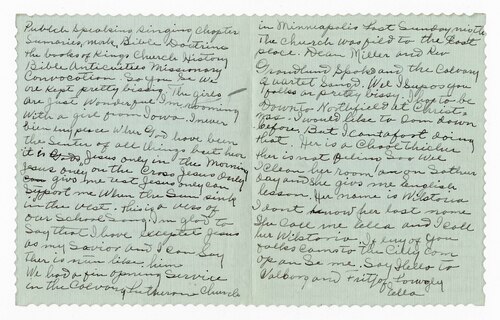 Publick Speaking Singing, Chapter
Sumaries, mark, Bible Doctrins
The books of Kings Church History
Bible Anticuities Missionary
Convocation. So you see we
are kept pretty bissing. The girls
are just Wonderful. Im rooming
With a girl from Iowa. I never
bien my place Wher God have been
the Senter of all things but her
it is Jesus only in the Morning
Jesus only on the Cross Jesus only
give me just Jesus only can
Support me When the Sun sink
in the vest. This is a vess of
our School Song. Im glad to
Say that I have excepted Jesus
as my Savior and I can Say
ther is nun like him
We had a fin opning Service
in the Calvary Lutheran Church
in Minneapolis last Sunday nicte
The Church was fild to the last
place. Dean Miller and Rev
Spoke and the Calvary
Quartet Sang. Wel I supos you
folks ar prety bissy. I hop to be
Down to Northfield at Christ
mas. I would like to com down
before, But I can't afoot doing
that. Her is a Chool theicher
ther is not feling Soo Wel
I clean her room an on Sother
day and She give me english
lesson. Her name is Wilstoria
I dont know her last nome
She Call me lella and I Call
her Wilstoria. If eny of you
folks cams to the City com
op an Se me. Say Hello to
Valborg and Fritjof. Lovegly
lella